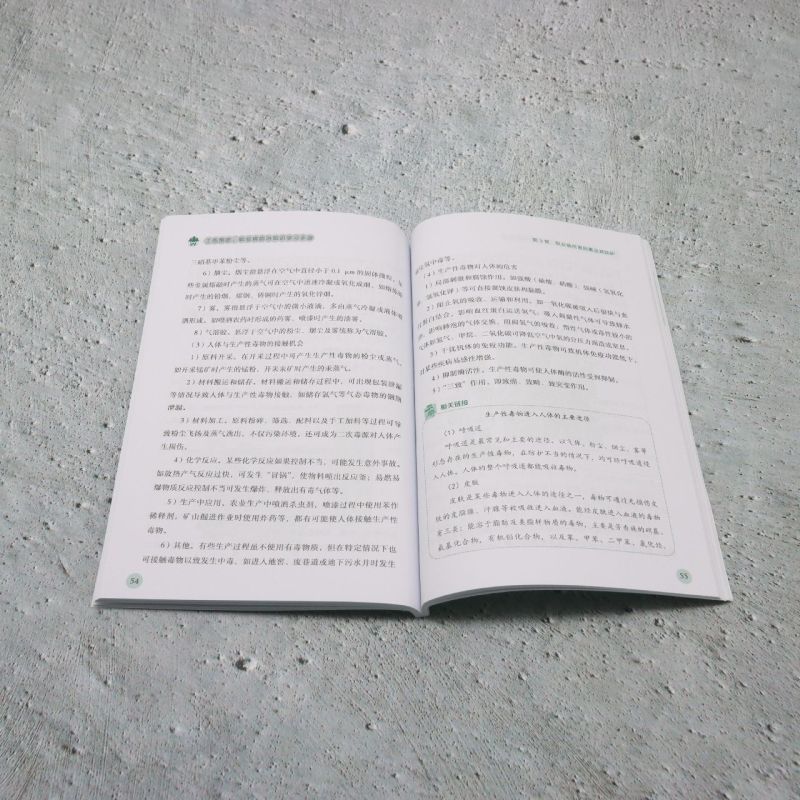 工伤预防、职业病防治知识学习手册
三硝基甲苯粉尘等。
6）烟尘。烟尘指悬浮在空气中直径小于 0.1 μm 的固体微粒。某
些金属熔融时产生的蒸气可在空气中迅速冷凝或氧化成烟，如熔铅
时产生的铅烟、熔铜、铸铜时产生的氧化锌烟。
7）雾。雾指悬浮于空气中的微小液滴，多由蒸气冷凝或液体喷
洒形成，如喷洒农药时形成的药雾、喷漆时产生的漆雾。
8）气溶胶。悬浮于空气中的粉尘、烟尘及雾统称为气溶胶。
（3）人体与生产性毒物的接触机会
1）原料开采。在开采过程中可产生生产性毒物的粉尘或蒸气，
如开采锰矿时产生的锰粉、开采汞矿时产生的汞蒸气。
2）材料搬运和储存。材料搬运和储存过程中，可出现包装泄漏
等情况导致人体与生产性毒物接触，如储存氯气等气态毒物的钢瓶
泄漏。
3）材料加工。原料粉碎、筛选、配料以及手工加料等过程可导
致粉尘飞扬及蒸气逸出，不仅污染环境，还可成为二次毒源对人体产
生损伤。
4）化学反应。某些化学反应如果控制不当，可能发生意外事故。
如放热产气反应过快，可发生“冒锅”，使物料喷出反应釜；易燃易
爆物质反应控制不当可发生爆炸，释放出有毒气体等。
5）生产中应用。农业生产中喷洒杀虫剂，喷漆过程中使用苯作
稀释剂，矿山掘进作业时使用炸药等，都有可能使人体接触生产性
毒物。
6）其他。有些生产过程虽不使用有毒物质，但在特定情况下也
可接触毒物以致发生中毒，如进入地窖、废巷道或地下污水井时发生
54
第 3 章 职业病危害因素及其防护
硫化氢中毒等。
（4）生产性毒物对人体的危害
1）局部刺激和腐蚀作用。如强酸（硫酸、硝酸）、强碱（氢氧化
钠、氢氧化钾）等可直接腐蚀皮肤和黏膜。
2）阻止氧的吸收、运输和利用。如一氧化碳被吸入后很快与血
红蛋白结合，影响血红蛋白运送氧气；吸入刺激性气体可导致肺水
肿，影响肺泡的气体交换，阻碍氧气的吸收；惰性气体或毒性较小的
气体如氮气、甲烷、二氧化碳可降低空气中氧的分压而造成窒息。
3）干扰机体的免疫功能。生产性毒物可致机体免疫功能低下，
对某些疾病易感性增强。
4）抑制酶活性。生产性毒物可使人体酶的活性受到抑制。
5）“三致”作用。即致癌、致畸、致突变作用。
相关链接
生产性毒物进入人体的主要途径
（1）呼吸道
呼吸道是最常见和主要的途径。以气体、粉尘、烟尘、雾等
形态存在的生产性毒物，在防护不当的情况下，均可经呼吸道侵
入人体。人体的整个呼吸道都能吸收毒物。
（2）皮肤
皮肤是某些毒物进入人体的途径之一，毒物可通过无损伤皮
肤的皮脂腺、汗腺等被吸收进入血液。能经皮肤进入血液的毒物
有三类：能溶于脂肪及类脂样物质的毒物，主要是芳香族的硝基、
氨基化合物，有机铅化合物，以及苯、甲苯、二甲苯、氯化烃、
55